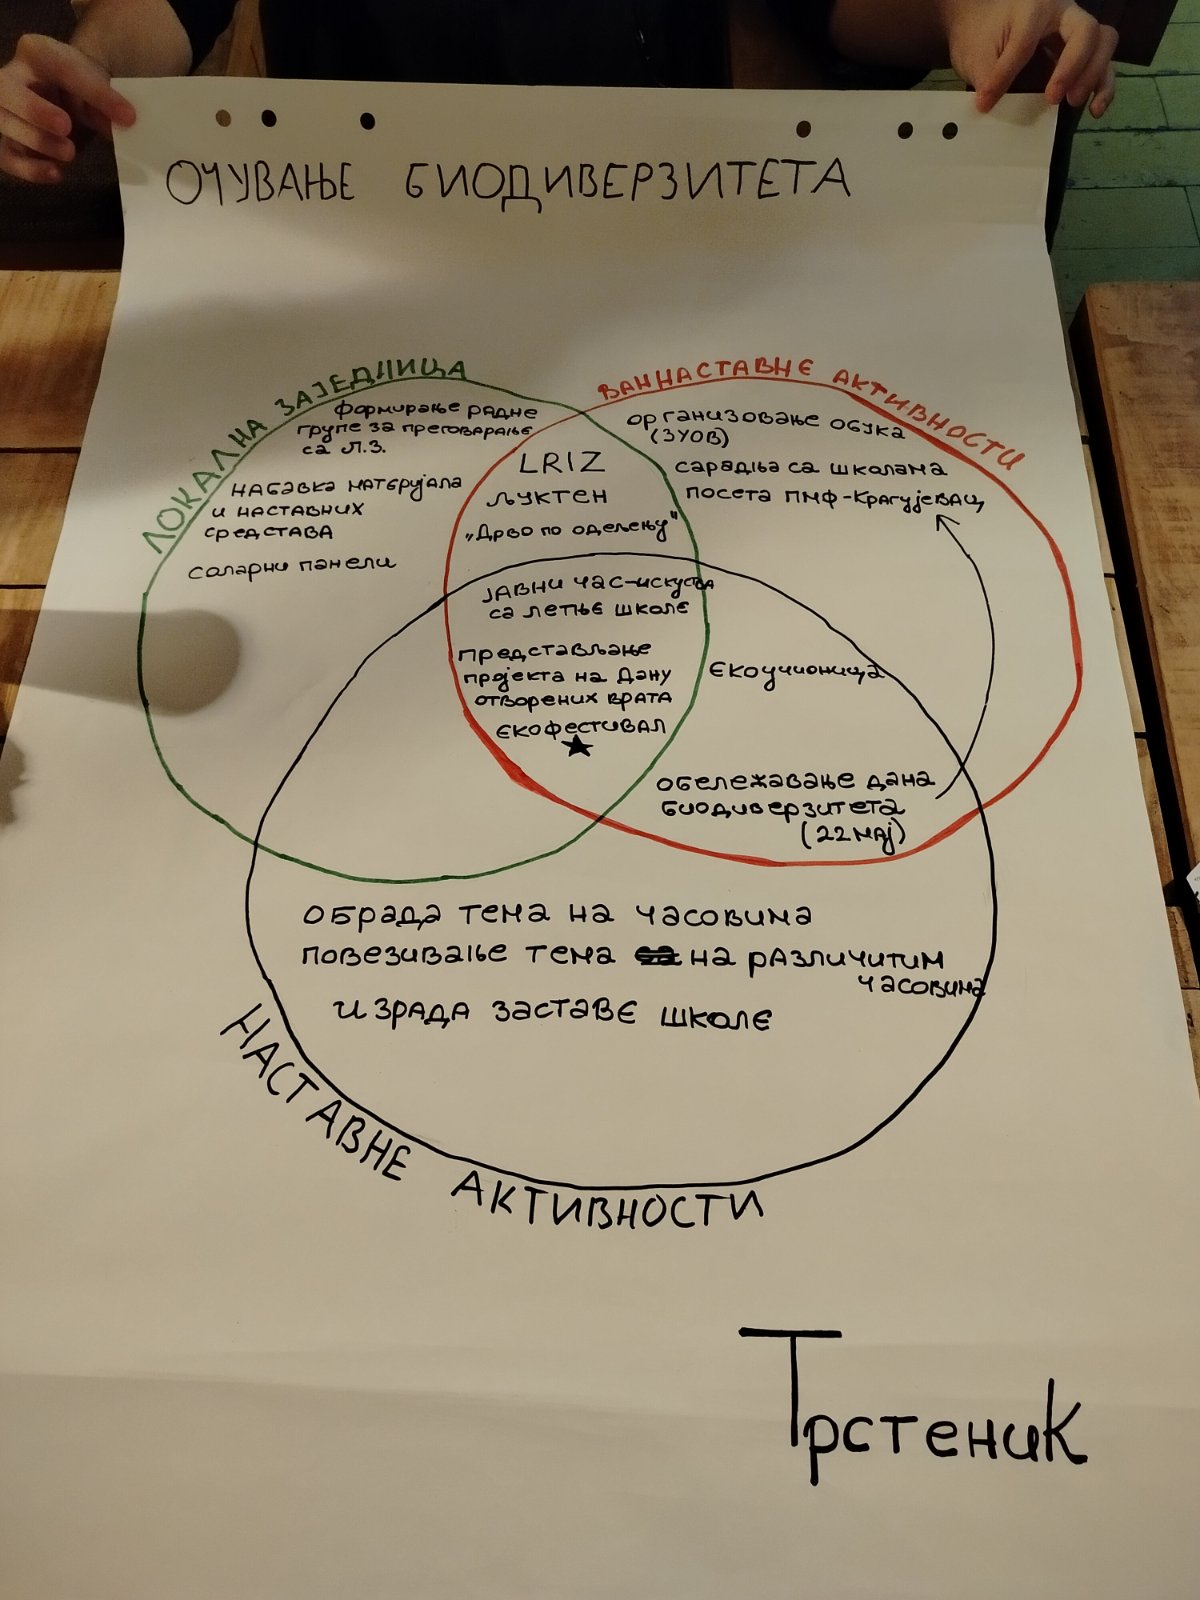 ОЧУВАЊЕ БИОДИВЕРЗИТЕТА
ЛОКАЛНА ЗАЈЕДНИЦА
формирање радне
групе за преговарање
са Л.З.
набавка материјала
и наставних
средстава
соларни панели
ВАННАСТАВНЕ АКТИВНОСТИ
организовање обука
(ЗУОВ)
сарадња са школама
посета ПМФ-Крагујевац
LRIZ
Љуктен
„Дрво по одељењу"
јавни час-искуства
са летње школе
представљање
пројекта на Дану
отворених врата
екофестивал
екоучионица
обележавање дана
биодиверзитета
(22 мај)
обрада тема на часовима
повезивање тема на различитим
часовима
израда заставе школе
НАСТАВНЕ АКТИВНОСТИ
Трстеник